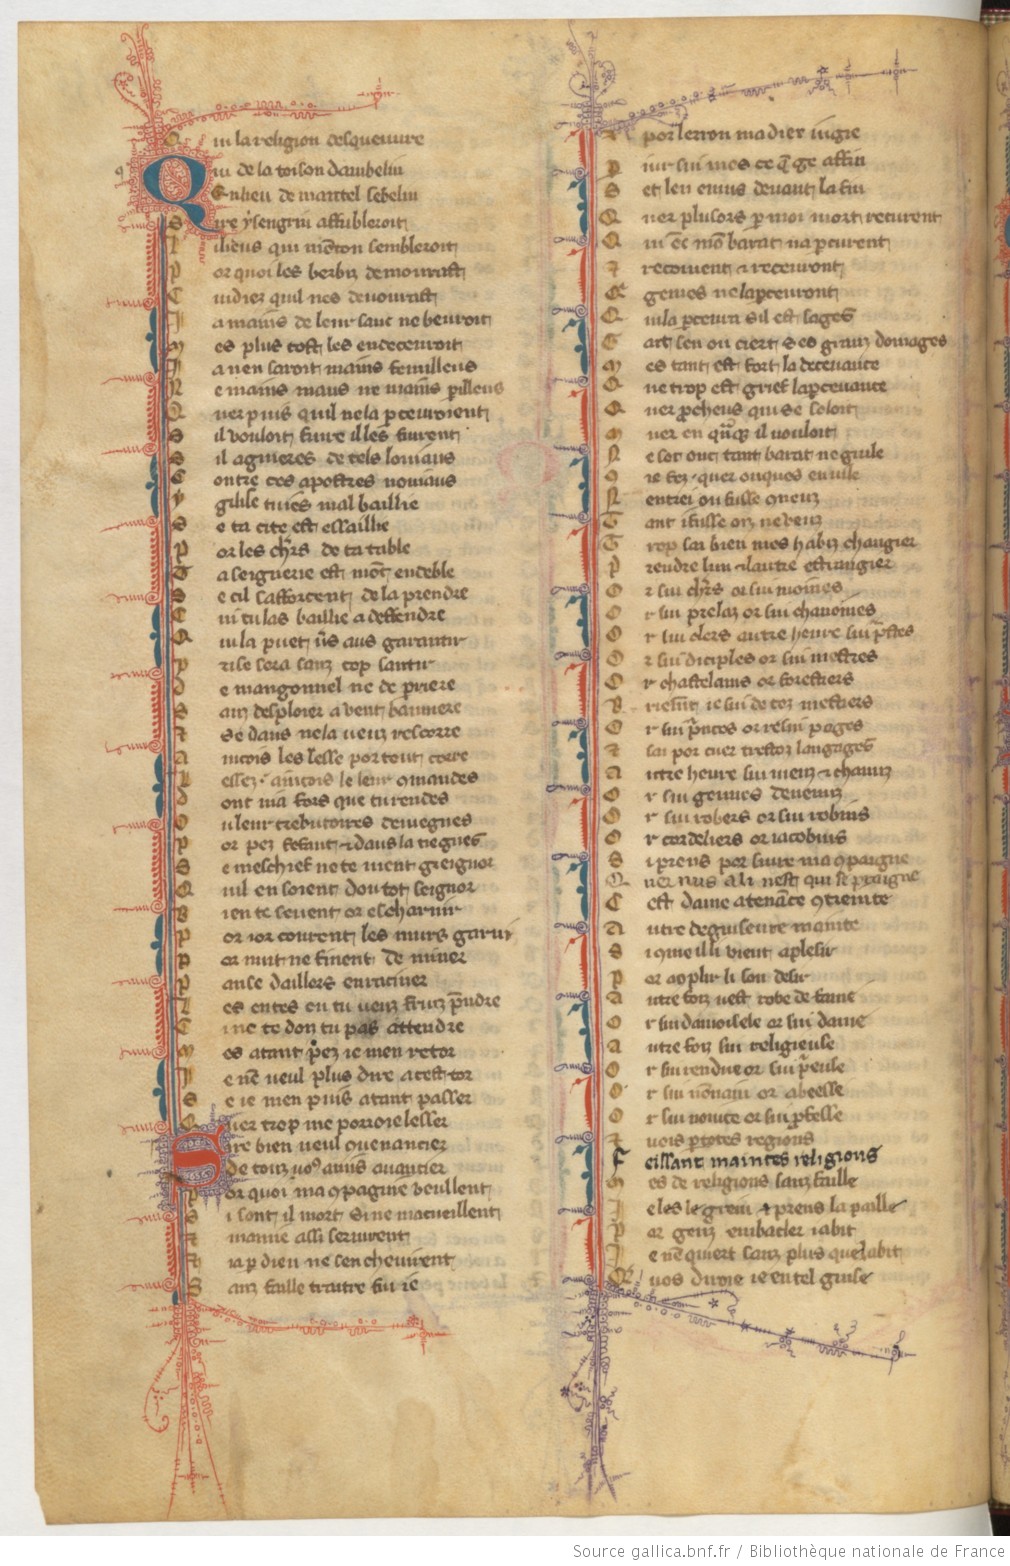 Qui la religion desquevvre
Qui de la toison dambelin
En lieu de mantel sebelin
Sire ysengrin affubleroit
Li leus qui mouton sembleroit
Por quoi les berbiz demourast
Cuidiez quil nes devourast
Ja mains de leur sanc ne bevroit
Mes plus tost les en decevroit
Ja nen seroit mains
Ne mains maus ne mains perilleus
Quer puis quil ne la percevroient
Sil vouloit fuire il les
Sil a guieres de tels loviaus
Entre ces apostres noviaus
Yglise tu ies mal baillie
Se ta cite est essaillie
Por les chrs de ta table
Ta seignerie est mot endeble
Se cil safforcent de la prendre
Cui tu las baillie a deffendre
Qui la puet vers aus garantir
Prise sera sanz cop sentir
De mangonnel ne de priere
Sanz desploier a vent banniere
Se dans ne la veuz rescorre
Aincois les lesse par tout corre
Lessez aincois se leur commandes
Dont ni a fors que tu rendes
Ou leur trebutaires deviegnes
Por pez fesant et dans la tiegnes
Se meschief ne te vient greignor
Quil en soient dou tot seignor
Bien te sevent or escharnir
Por jor courent les murs garnir
Par nuit ne finent de miner
Panse daillors enraciner
Les entes ou tu veuz fruiz prendre
Ci ne te doiz tu pas attendre
Mes atant pez ie men retor
Je nen veul plus dire a cest tor
Se ie men puis atant passer
Quer trop me porroie lesser
Sire bien veul covenancier
De touz vos amis avancier
Por quoi ma compagnie veullent
Si sont il mort si ne macueillent
Et mamie assi serviront
Ia par dieu ne sen cheviront
Sanz faille traitre sui ie
A por lerron ma dieu iugie
Periur sui mes ce que ge affin
Set len envis devant la fin
Quer plusors par moi mort recurent
Qui onc mon barat naparcurent
Et recoivent et recevront
Qui gemes ne lapercevront
Qui la percevra sil est sages
Gart sen ou ciert ses granz domages
Mes tant est fort la decevance
Que trop est grief lapercevance
Quer protheus qui se soloit
Muer en quanque il vouloit
Ne sot onc tant barat ne guile
Que ie fez quer onques en vile
Nentrai ou fusse conneuz
Tant i fusse oiz ne veuz
Trop sai bien mes habiz changier
Prendre lun et lautre estrangier
Or sui chrs or sui moines
Or sui prelaz or sui chanoines
Or sui clers autre heure sui prestres
Or sui diciples or sui mestres
Or chastelains or forestiers
Briement ie sui de toz mestiers
Or sui princes or resui pages
Et sai por cuer trestoz langages
Autre heure sui vieuz et chanuz
Or sui geunes devenuz
Or sui robers or sui robins
Or cordeliers or iacobins
Si prens por suire ma compaigne
Cest dame atenance contrainte
Autre deguiseure mainte
Si que il li vient a plesir
Por acomplir li son desir
Autre foiz vest robe de fame
Or sui damoisele or sui dame
Autre foiz sui religieuse
Or sui rendue or sui prieuse
Or sui nonnain or abeesse
Or sui novice or sui professe
Et vois par totes regions
Ceillant maintes religions
Mes de religions sanz faille
Je les le grain et prens la paille
Por genz embacler i abit
Je nen quiert sanz plus que labit
Que vos diroie ie en tel guise